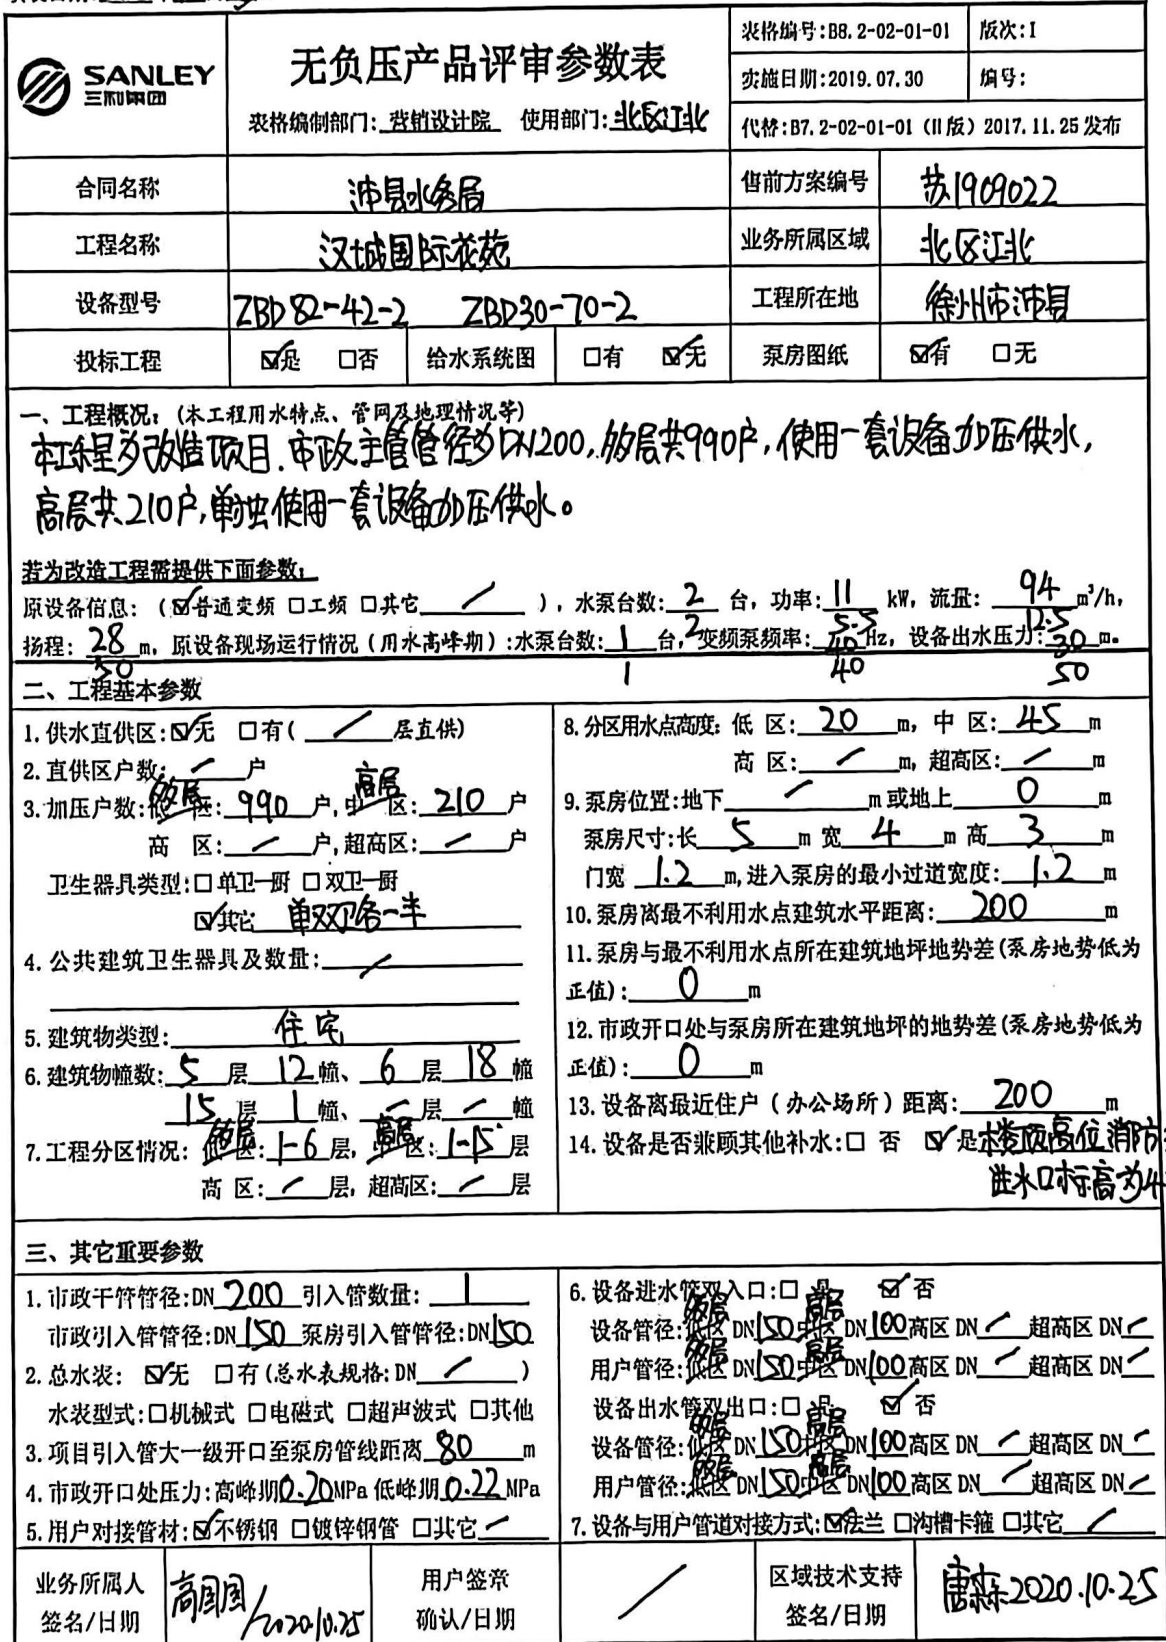 SANLEY
三和集团
无负压产品评审参数表
表格编制部门:营销设计院 使用部门:北区江北
表格编号:B8.2-02-01-01 版次:I
实施日期:2019.07.30 编号:
代替:B7.2-02-01-01 (II版) 2017.11.25发布
合同名称 沛县水务局 售前方案编号 苏1909022
工程名称 汉城国际花苑 业务所属区域 北区江北
设备型号 ZBD82-42-2 ZBD30-70-2 工程所在地 徐州市沛县
投标工程 ☑是 □否 给水系统图 □有 ☑无 泵房图纸 ☑有 □无
一、工程概况:(本工程用水特点、管网及地理情况等)
本工程为改造项目.市政主管管径为DN200,多层共990户,使用一套设备加压供水,
高层共210户,单独使用一套设备加压供水。
若为改造工程需提供下面参数:
原设备信息:(☑普通变频 □工频 □其它 / ),水泵台数: 2 台,功率: 11 kW,流量: 94 m³/h,
2 5.5 12.5
扬程: 28 m,原设备现场运行情况(用水高峰期):水泵台数: 1 台,变频泵频率: 40 Hz,设备出水压力: 30 m。
50 1 40 50
二、工程基本参数
1.供水直供区:☑无 □有( / 层直供)
2.直供区户数: / 户
多层 高层
3.加压户数:低 区: 990 户,中 区: 210 户
高 区: / 户,超高区: / 户
卫生器具类型:□单卫一厨 □双卫一厨
☑其它 单双卫各一半
4.公共建筑卫生器具及数量: /
5.建筑物类型: 住宅
6.建筑物幢数: 5 层 12 幢、 6 层 18 幢
15 层 1 幢、 / 层 / 幢
多层 高层
7.工程分区情况:低 区: 1-6 层,中 区: 1-15 层
高 区: / 层,超高区: / 层
8.分区用水点高度:低 区: 20 m,中 区: 45 m
高 区: / m,超高区: / m
9.泵房位置:地下 / m或地上 0 m
泵房尺寸:长 5 m 宽 4 m 高 3 m
门宽 1.2 m,进入泵房的最小过道宽度: 1.2 m
10.泵房离最不利用水点建筑水平距离: 200 m
11.泵房与最不利用水点所在建筑地坪地势差(泵房地势低为
正值): 0 m
12.市政开口处与泵房所在建筑地坪的地势差(泵房地势低为
正值): 0 m
13.设备离最近住户(办公场所)距离: 200 m
14.设备是否兼顾其他补水:□ 否 ☑ 是楼顶高位消防
进水口标高为4
三、其它重要参数
1.市政干管管径:DN 200 引入管数量: 1
市政引入管管径:DN 150 泵房引入管管径:DN 150
2.总水表: ☑无 □有(总水表规格:DN / )
水表型式:□机械式 □电磁式 □超声波式 □其他
3.项目引入管大一级开口至泵房管线距离 80 m
4.市政开口处压力:高峰期0.20MPa 低峰期0.22MPa
5.用户对接管材:☑不锈钢 □镀锌钢管 □其它 /
6.设备进水管双入口:□ 是 ☑ 否
多层 高层
设备管径:低区 DN150中区 DN100高区 DN / 超高区 DN /
多层 高层
用户管径:低区 DN150中区 DN100高区 DN / 超高区 DN /
设备出水管双出口:□ 是 ☑ 否
多层 高层
设备管径:低区 DN150中区 DN100高区 DN / 超高区 DN /
多层 高层
用户管径:低区 DN150中区 DN100高区 DN / 超高区 DN /
7.设备与用户管道对接方式:☑法兰 □沟槽卡箍 □其它 /
业务所属人 用户签章 区域技术支持
签名/日期 高国国/2020.10.25 确认/日期 / 签名/日期 唐森2020.10.25